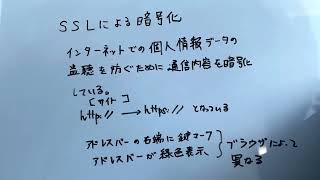 SSLによる暗号化
インターネットでの個人情報データの
盗聴を防ぐために通信内容を暗号化
している。
[サイト]
http:// → https:// となっている
アドレスバーの右端に鍵マーク
アドレスバーが緑色表示
ブラウザによって
異なる